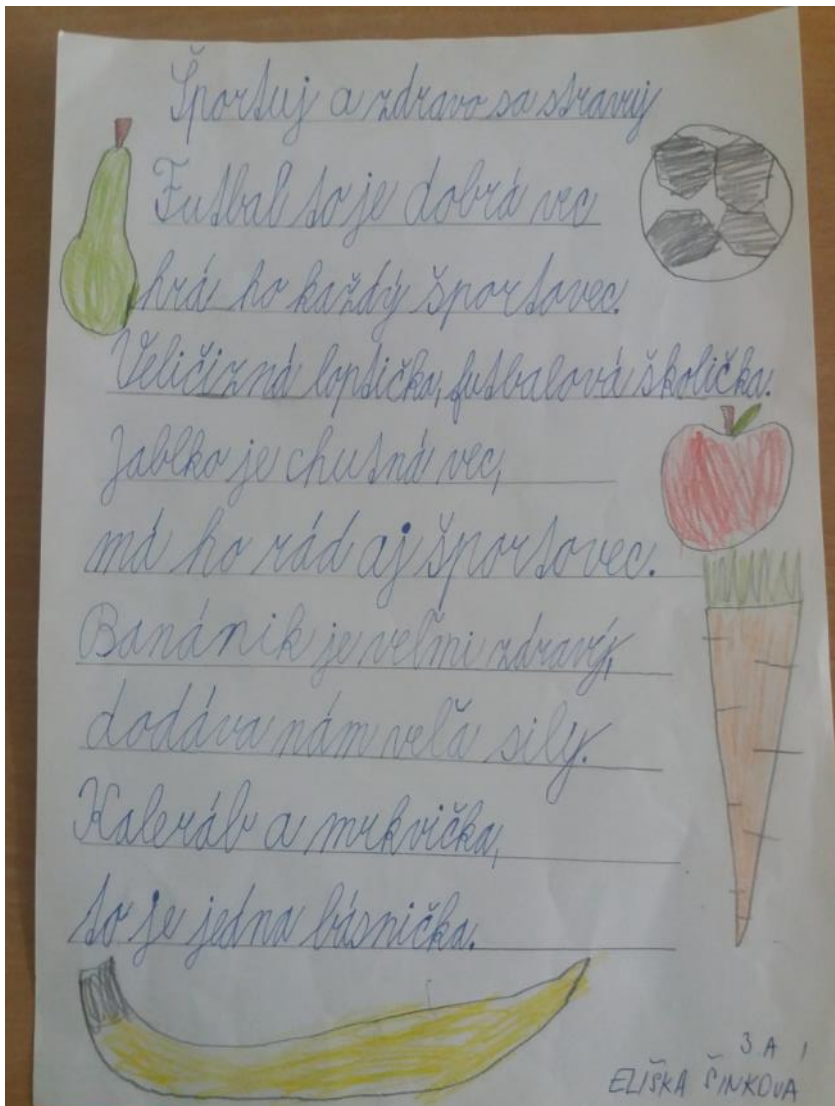 Športuj a zdravo sa stravuj
Futbal to je dobrá vec
hrá ho každý športovec.
Veličizná loptička, futbalová školička.
Jablko je chutná vec,
má ho rád aj športovec.
Banánik je veľmi zdravý,
dodáva nám veľa sily.
Kaleráb a mrkvička,
to je jedna básnička.
3 A
ELIŠKA ŠINKOVA